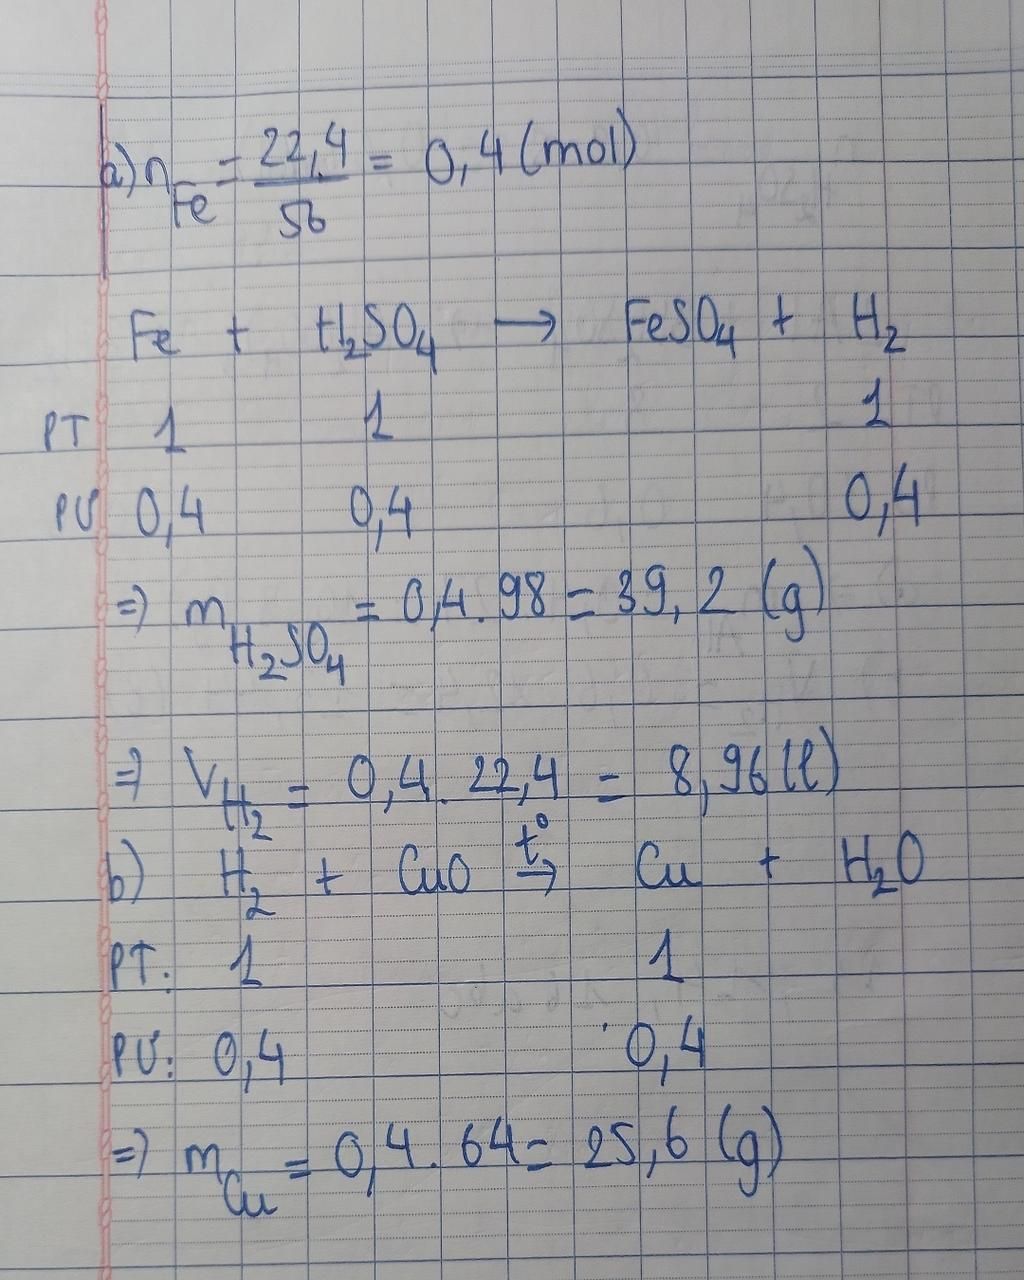 a) nFe = 22,4/56 = 0,4 (mol)
Fe + H2SO4 → FeSO4 + H2
PT 1 1 1
PƯ 0,4 0,4 0,4
=) mH2SO4 = 0,4. 98 = 39,2 (g)
=) VH2 = 0,4. 22,4 = 8,96 (l)
b) H2 + CuO t°→ Cu + H2O
PT: 1 1
PƯ: 0,4 0,4
=) mCu = 0,4. 64 = 25,6 (g)